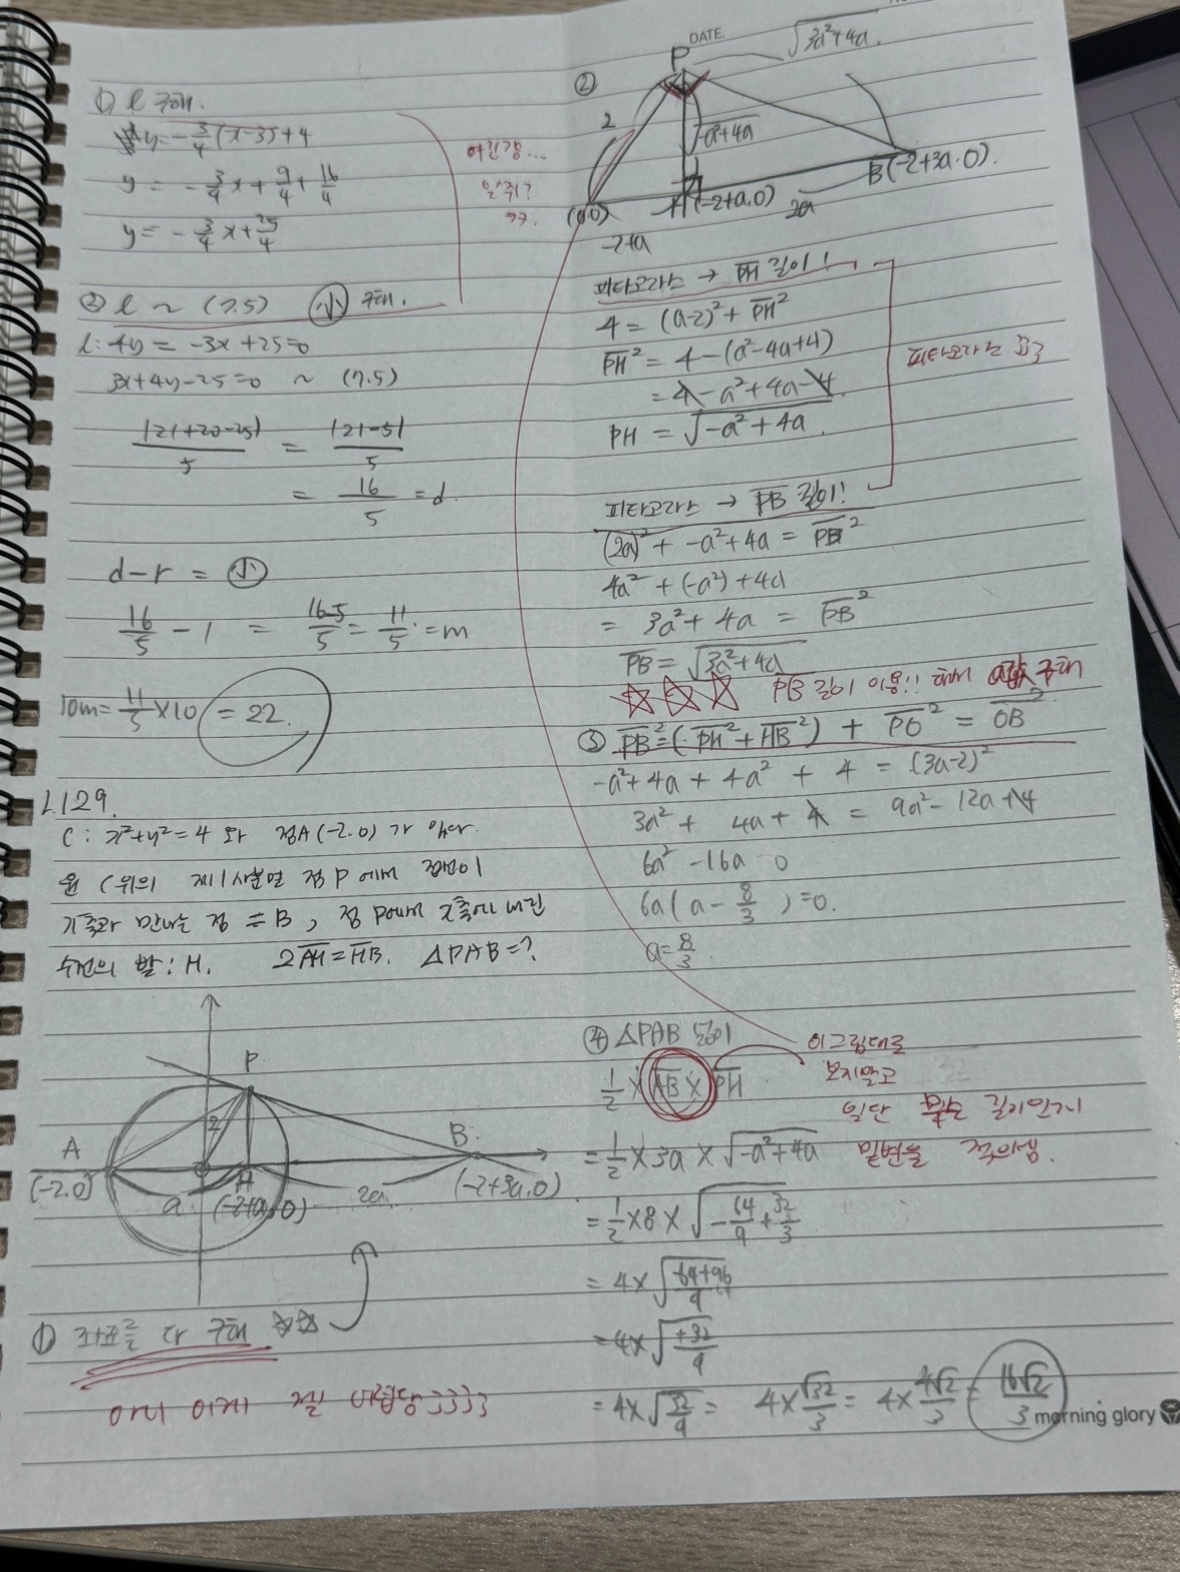 ① l 구해.
y=-3/4(x-3)+4
y = -3/4x+9/4+16/4
y=-3/4x+25/4
② l ~ (7.5) 小 구해.
l: 4y = -3x+25=0
3x+4y-25=0 ~ (7.5)
|21+20-25|/5 = |21-5|/5
= 16/5 =d.
d-r = 小
16/5 - 1 = 16-5/5 = 11/5 =m
10m= 11/5 ×10 = 22.
129.
C: x²+y²=4 와 점A(-2.0) 가 있다.
원 C 위의 제1사분면 점 P 에서 접선이
x축과 만나는 점 = B, 점 P에서 x축에 내린
수선의 발: H. 2AH=HB. △PAB=?
P
2
A
(-2.0)
a
H
(-2+a, 0)
2a
B.
(-2+3a,0)
① 좌표를 다 구해 ☆☆
아니 이게 젤
DATE
② P √3a²+4a.
2
√-a²+4a
B(-2+3a.0).
(0,0)
H(-2+a,0)
2a
-2+a
피타고라스 → PH 길이!
4= (a-2)²+PH²
PH²= 4-(a²-4a+4)
= 4-a²+4a-4
PH = √-a²+4a.
피타고라스
피타고라스 → PB 길이!
(2a)²+ -a²+4a = PB²
4a² + (-a²)+4a
= 3a²+4a = PB²
PB = √3a²+4a
☆☆☆ PB 길이 이용!! 해서 a값 구해
③ PB²=(PH²+HB²) + PO² = OB²
-a²+4a + 4a² + 4 = (3a-2)²
3a²+ 4a+4 = 9a²-12a+4
6a²-16a=0
6a(a-8/3)=0.
a=8/3
④ △PAB 넓이
1/2×AB×PH
이 그림대로
보지말고
일단 길이인지
밑변을
=1/2×3a×√-a²+4a
=1/2×8×√-64/9+32/3
= 4×√-64+96/9
=4×√+32/9
= 4×√32/9 = 4×√32/3 = 4×4√2/3 = 16√2/3
morning glory